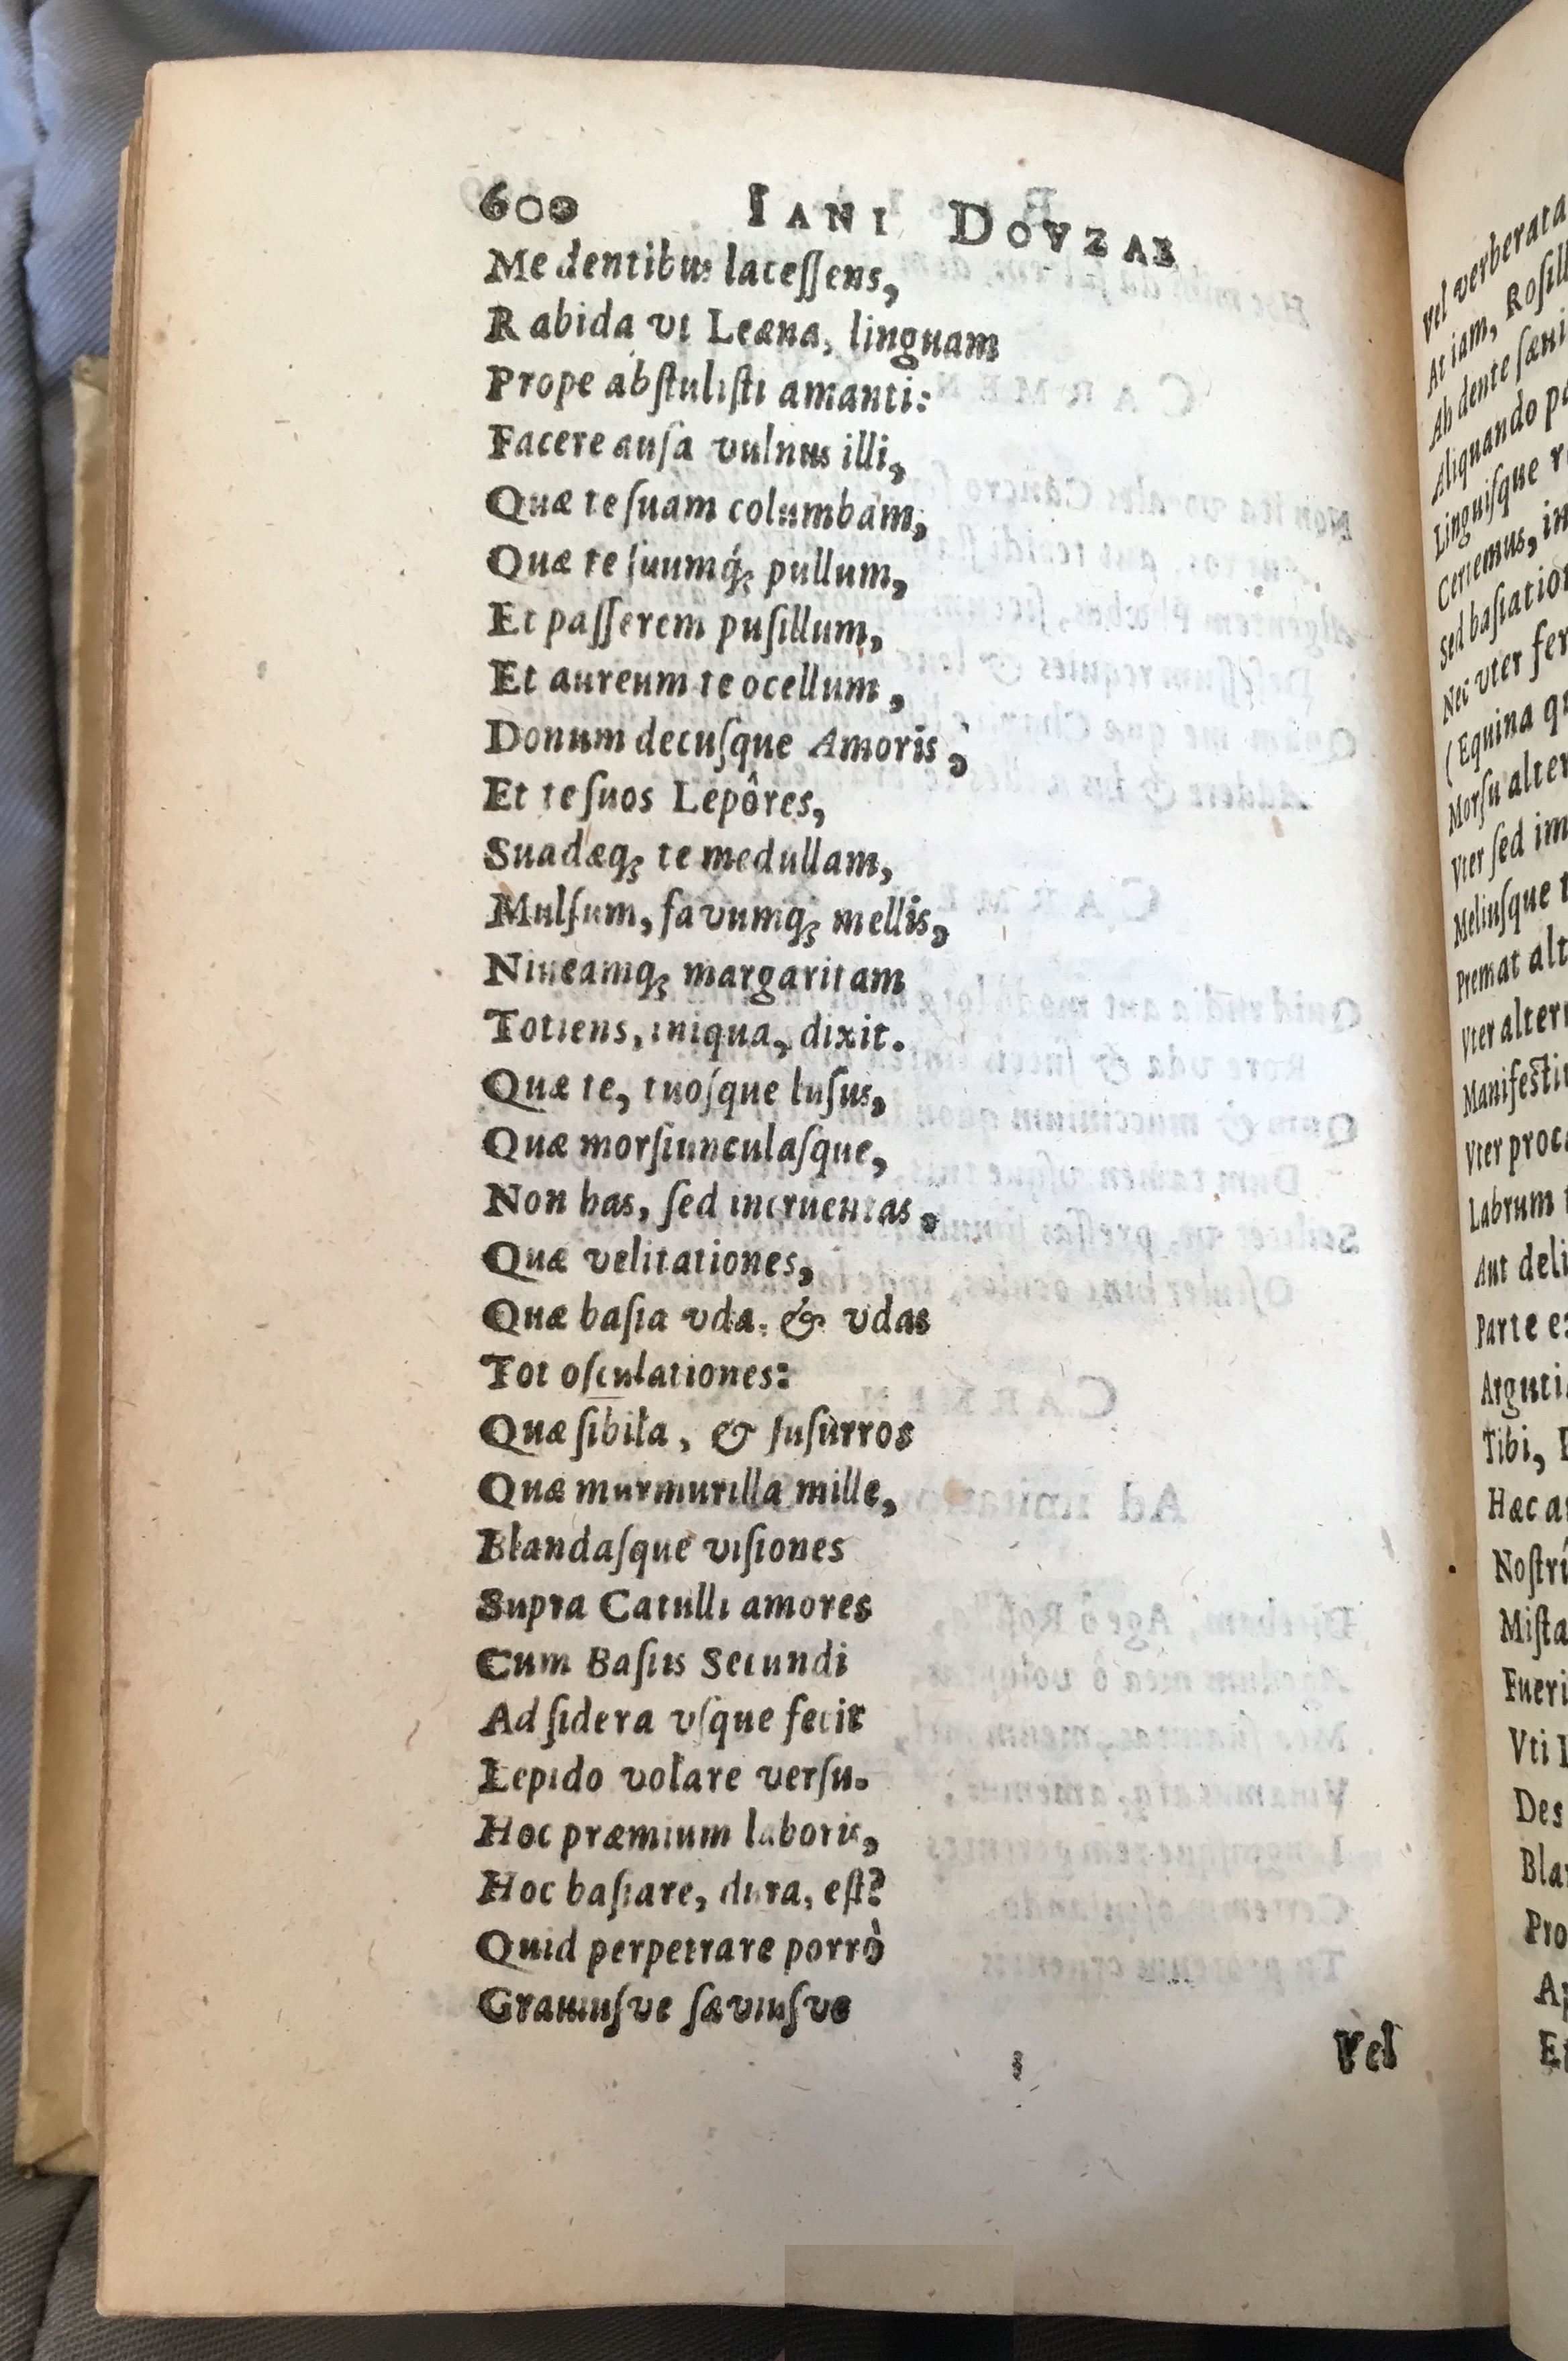 600 IANI DOVZAE
Me dentibus laceſſens,
Rabida vt Leæna, linguam
Prope abſtuliſti amanti:
Facere auſa vulnus illi,
Quæ te ſuam columbam,
Quæ te ſuumq́; pullum,
Et paſſerem puſillum,
Et aureum te ocellum,
Donum decuſque Amoris,
Et te ſuos Lepôres,
Suadæq; te medullam,
Mulſum, favumq; mellis,
Niueamq; margaritam
Totiens, iniqua, dixit.
Quæ te, tuoſque luſus,
Quæ morſiunculaſque,
Non has, ſed incruentas,
Quæ velitationes,
Quæ baſia vda, & vdas
Tot oſculationes:
Quæ ſibila, & ſuſurros
Quæ murmurilla mille,
Blandaſque viſiones
Supra Catulli amores
Cum Baſiis Secundi
Ad ſidera vſque fecit
Lepido volare verſu.
Hoc præmium laboris,
Hoc baſiare, dura, eſt?
Quid perpetrare porrò
Grauiuſve ſæviuſve
Vel
Vel verberata
At iam,
Ab dente
Aliquando
Linguiſque
Certemus,
Sed
Nec vter
(Equina
Morſu
Vter ſed
Meliuſque
Premat
Vter
Vter
Labrum
Aut
Parte
Tibi,
Hæc
Vti
Des